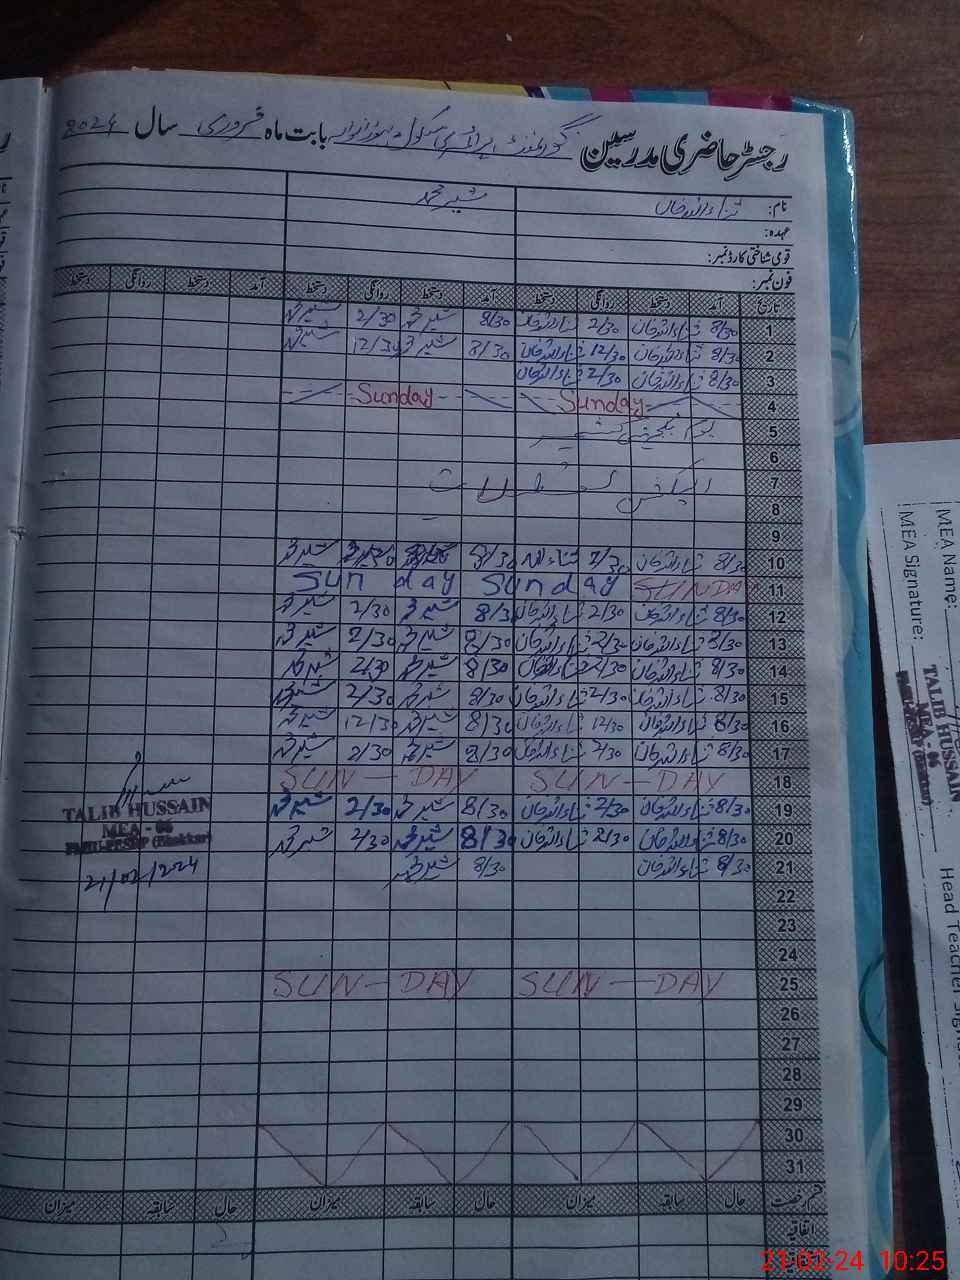 رجسٹر حاضری مدرسین گورنمنٹ پرائمری سکول بابت ماہ فروری سال 2024
نام: ثناءاللہ خان شیر محمد
عہدہ:
قومی شناختی کارڈ نمبر:
فون نمبر:
تاریخ آمد دستخط روانگی دستخط آمد دستخط روانگی دستخط آمد دستخط روانگی دستخط
1 8/30 ثناءاللہ خان 2/30 ثناءاللہ خان 8/30 شیر محمد 2/30 شیر محمد
2 8/30 ثناءاللہ خان 12/30 ثناءاللہ خان 8/30 شیر محمد 12/30 شیر محمد
3 8/30 ثناءاللہ خان 2/30 ثناءاللہ خان
4 Sunday Sunday
5 یوم یکجہتی کشمیر
6
7 الیکشن تعطیلات
8
9
10 8/30 ثناءاللہ خان 2/30 ثناءاللہ 8/30 2/30 شیر محمد
11 SUNDAY Sunday Sunday
12 8/30 ثناءاللہ خان 2/30 ثناءاللہ خان 8/30 شیر محمد 2/30 شیر محمد
13 8/30 ثناءاللہ خان 2/30 ثناءاللہ خان 8/30 شیر محمد 2/30 شیر محمد
14 8/30 ثناءاللہ خان 2/30 ثناءاللہ خان 8/30 شیر محمد 2/30 شیر محمد
15 8/30 ثناءاللہ خان 2/30 ثناءاللہ خان 8/30 شیر محمد 2/30 شیر محمد
16 8/30 ثناءاللہ خان 12/30 ثناءاللہ خان 8/30 شیر محمد 12/30 شیر محمد
17 8/30 ثناءاللہ خان 2/30 ثناءاللہ خان 8/30 شیر محمد 2/30 شیر محمد
18 SUN-DAY SUN-DAY
19 8/30 ثناءاللہ خان 2/30 ثناءاللہ خان 8/30 شیر محمد 2/30 شیر محمد
20 8/30 ثناءاللہ خان 2/30 ثناءاللہ خان 8/30 شیر محمد 2/30 شیر محمد
21 8/30 ثناءاللہ خان 8/30 شیر محمد
22
23
24
25 SUN-DAY SUN-DAY
26
27
28
29
30
31
قسم رخصت حال سابقہ میزان حال سابقہ میزان حال سابقہ میزان
اتفاقیہ
TALIB HUSSAIN
MEA - 06
(Bhakkar)
21/02/2024
MEA Name:
MEA Signature:
TALIB HUSSAIN
MEA - 06
(Bhakkar)
Head Teacher
21-02-24 10:25